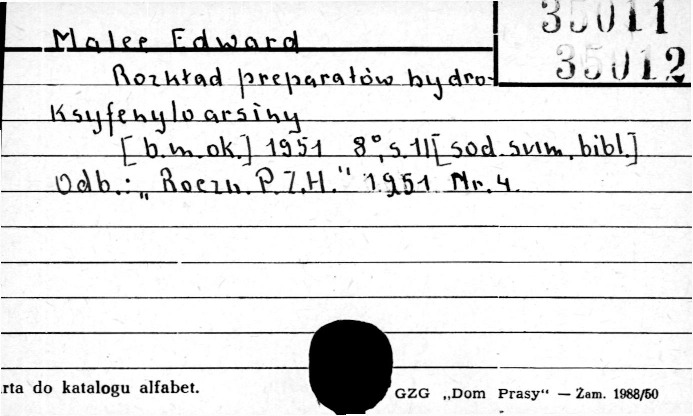 35011
35012
Malec Edward
Rozkład preparatów hydro-
ksyfenyloarsiny
[b.m.ok.] 1951 8°, s. 11 [sod. sum. bibl.]
Odb.: „Roczn. P.Z.H." 1951 Nr. 4.
rta do katalogu alfabet.
GZG „Dom Prasy" — Zam. 1988/50